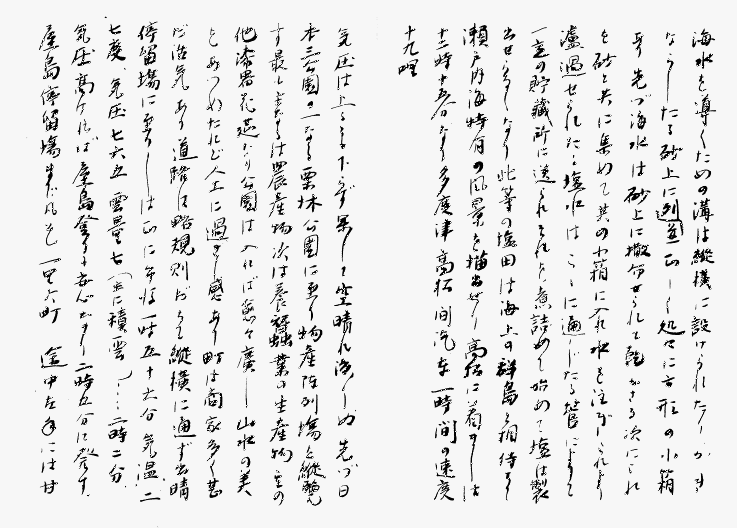 海水を導くための溝は縦横に設けられたり
ならしたる砂上に列並し処々に方形の小箱
あり先づ海水は砂上に撒布せられて乾かさる次にこれ
を砂と共に集めて其の小箱に入れ水を注がしれより
濾過せられたる塩水はこゝに通じたる管によりて
一定の貯蔵所に送られそれを煮詰めて始めて塩は製
出せらるゝなり此等の塩田は海上の群島と相待ちて
瀬戸内海特有の風景を描出せり高松に着せしは
十二時十五分なり多度津高松間汽車一時間の速度
十九哩
気圧は上るも下らず果して空晴れ渡りしめ先づ日
本三公園の一なる栗林公園に至り物産陳列場を縦覧
す最も主なるは農産物次は養蚕業の生産物其の
他漆器花莚なり公園は入れば愈々廣し山水の美
をあつめたれど人工に過ぎし感あり町は商家多く甚
だ活気あり道路は略規則だちて縦横に通ず出晴
停留場に至りしは正に午后一時五十六分気温二
七度、気圧七六五 雲量七(主に積雲)、…二時二分
気圧高ければ屋島登りも安心なり二時五分に発す
屋島停留場まで凡そ一里六町 途中左手には甘